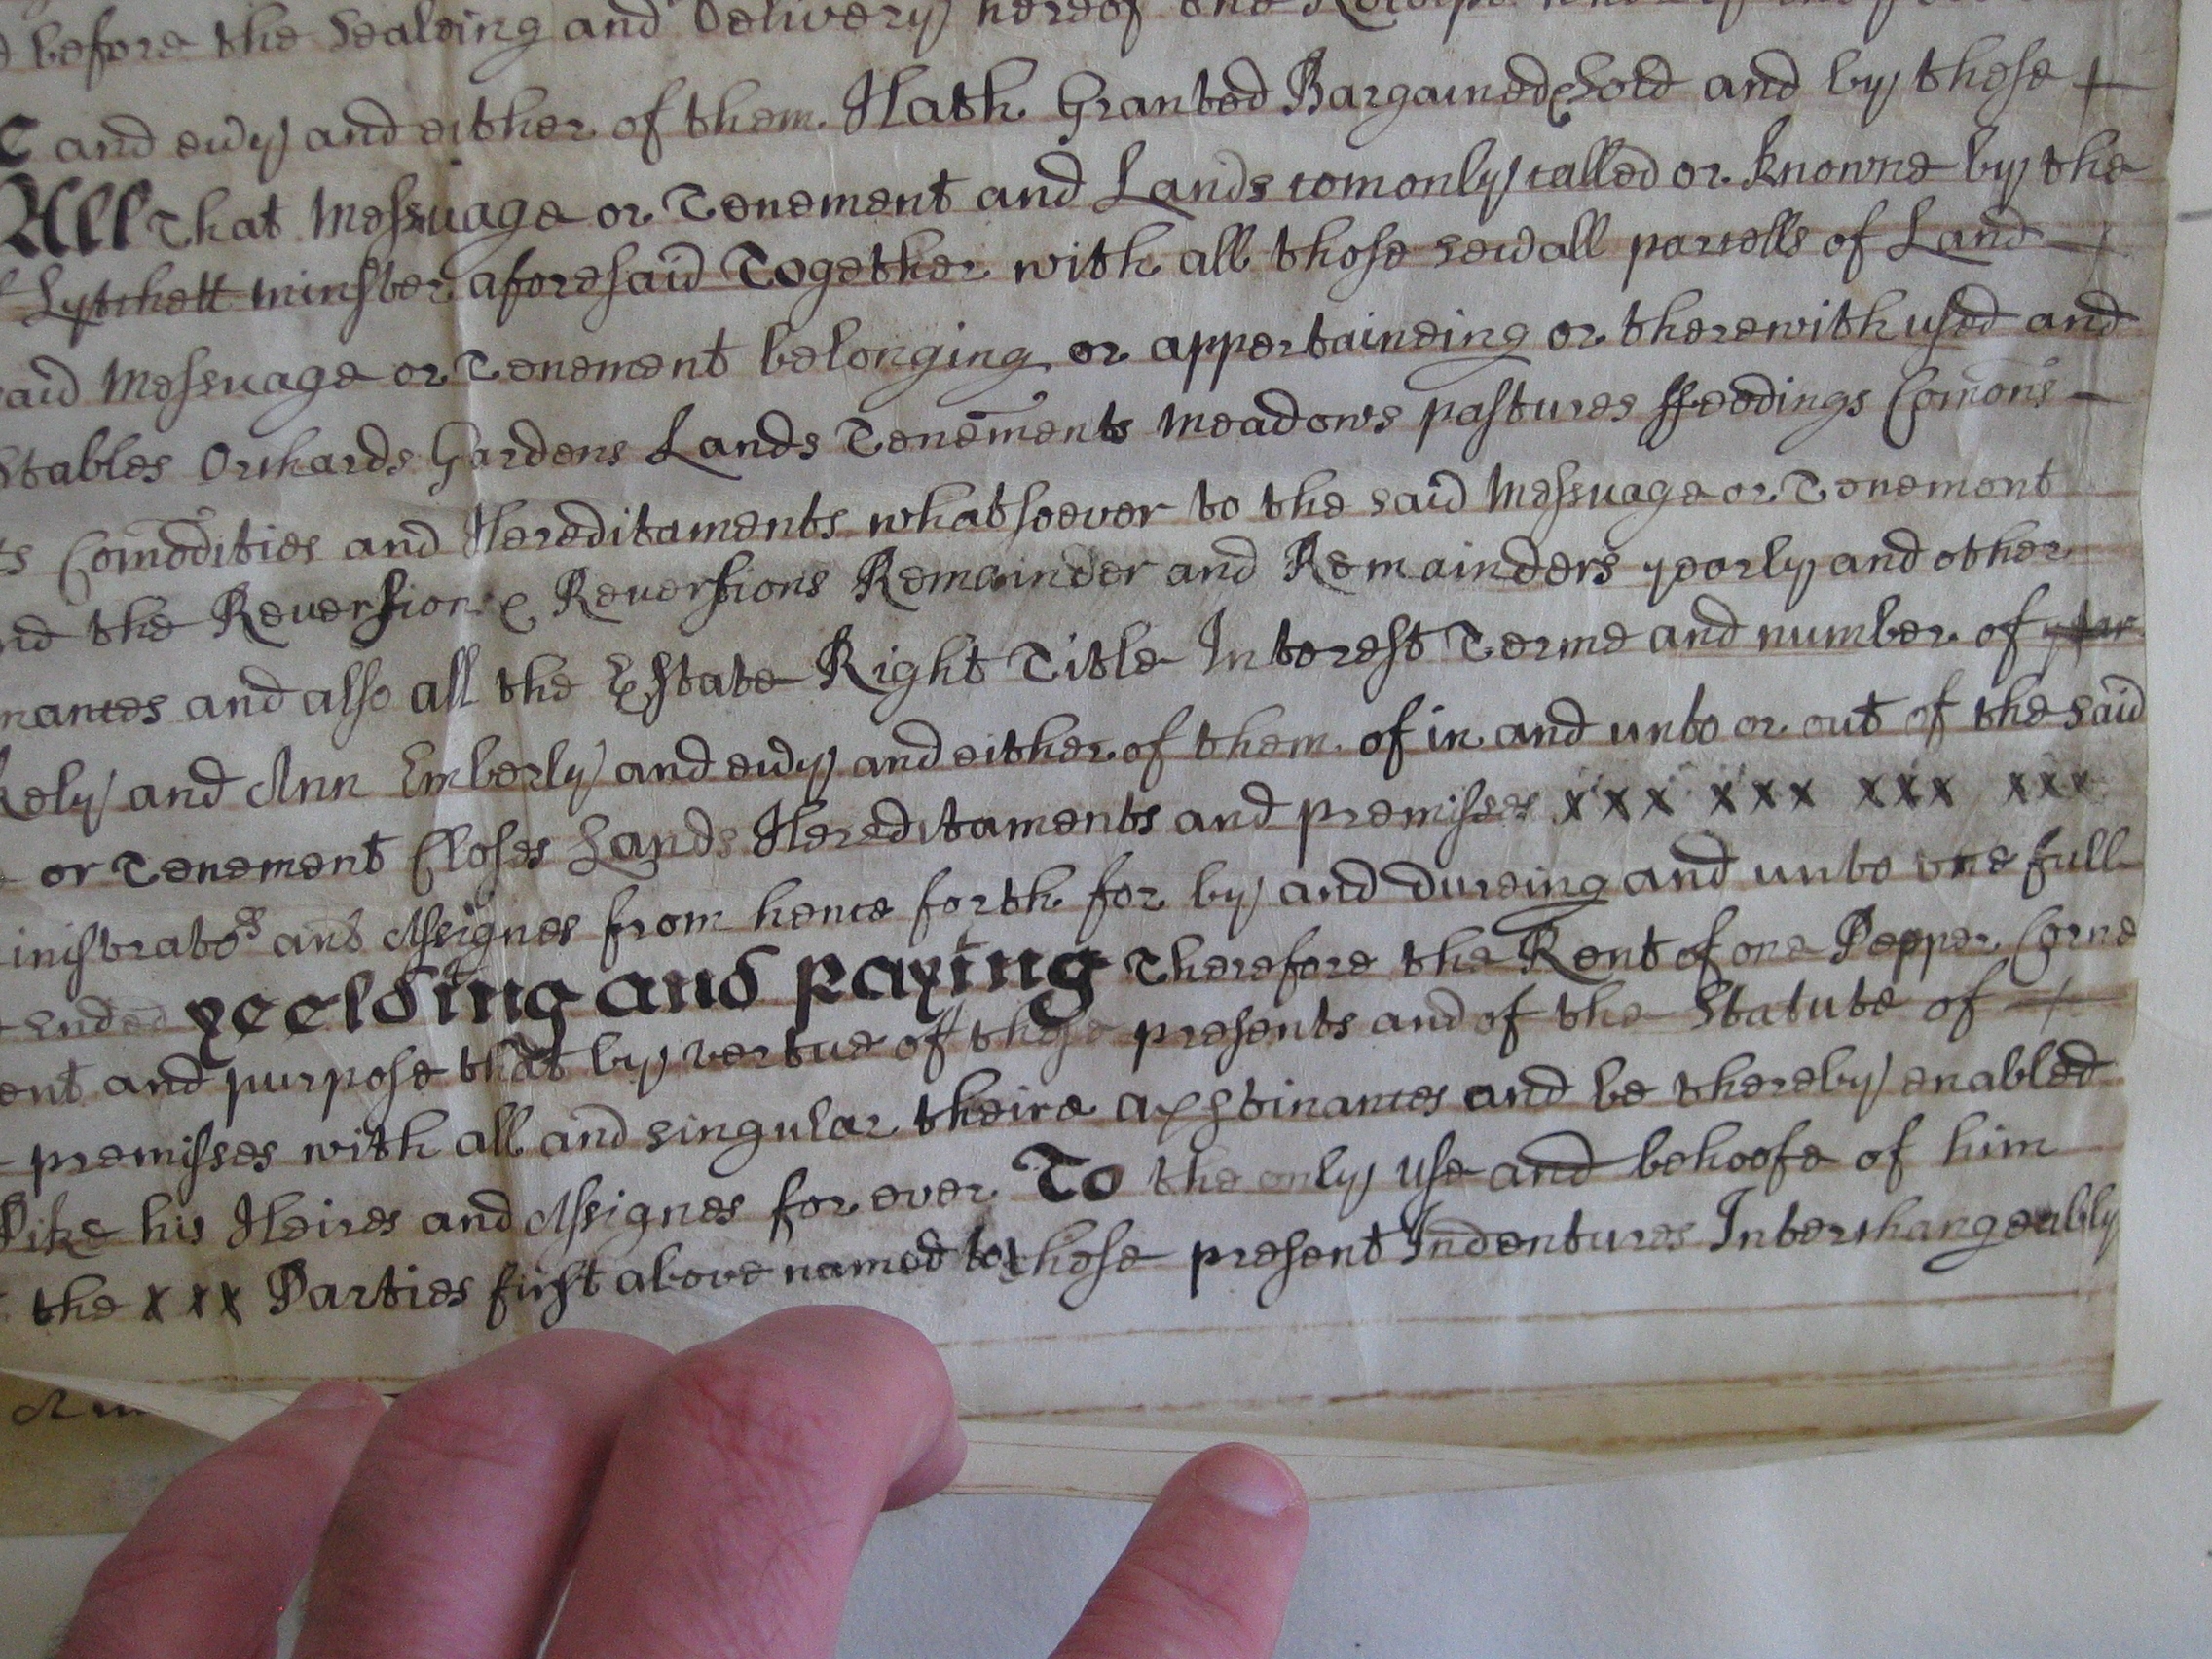 before the Sealeing and Delivery hereof the
and evỹ and either of them Hath Granted Bargained & Sold and by these
All that Messuage or Tenement and Lands comonly called or knowne by the
Lytchett minster aforesaid Together with all those sevall parcells of Land
aid Messuage or Tenement belonging or appertaineing or therewith used and
Stables Orchards Gardens Lands Tenem̃ents Meadows pastures ffeedings Com̃ons
ts Com̃odities and Hereditaments whatsoever to the said Messuage or Tenement
nd the Reversion & Reversions Remainder and Remainders yearly and other
nances and also all the Estate Right Title Interest Terme and number of
kely and Ann Emberly and evỹ and either of them of in and unto or out of the said
or Tenement Closes Lands Hereditaments and premisses x x x x x x x x x x x x
inistratoʳˢ and Assignes from hence forth for by and dureing and unto one full
ended yeelding and paying Therefore the Rent of one Pepper Corne
ent and purpose that by vertue of these presents and of the Statute of
premisses with all and singular theire apptinances and be thereby enabled
Pike his Heires and Assignes for ever To the only use and behoofe of him
the x x x Parties first above named to these present Indentures Interchangeably